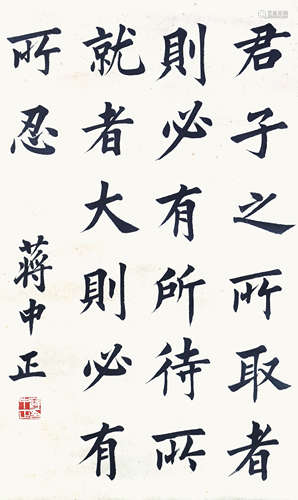 君子之所取者
則必有所待所
就者大則必有
所忍
蔣中正